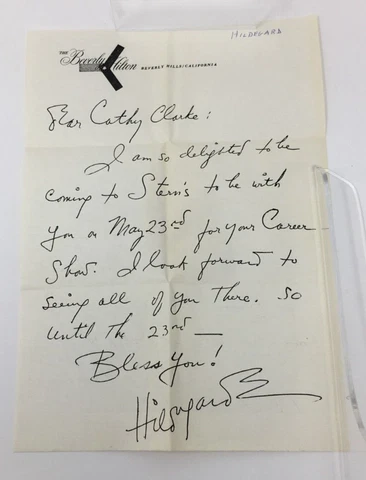 HILDEGARD
THE Beverly Hilton BEVERLY HILLS/CALIFORNIA
Dear Cathy Clarke:
I am so delighted to be
coming to Stern's to be with
you on May 23rd for your Career
Show. I look forward to
seeing all of you there. So
until the 23rd —
Bless you!
Hildegard